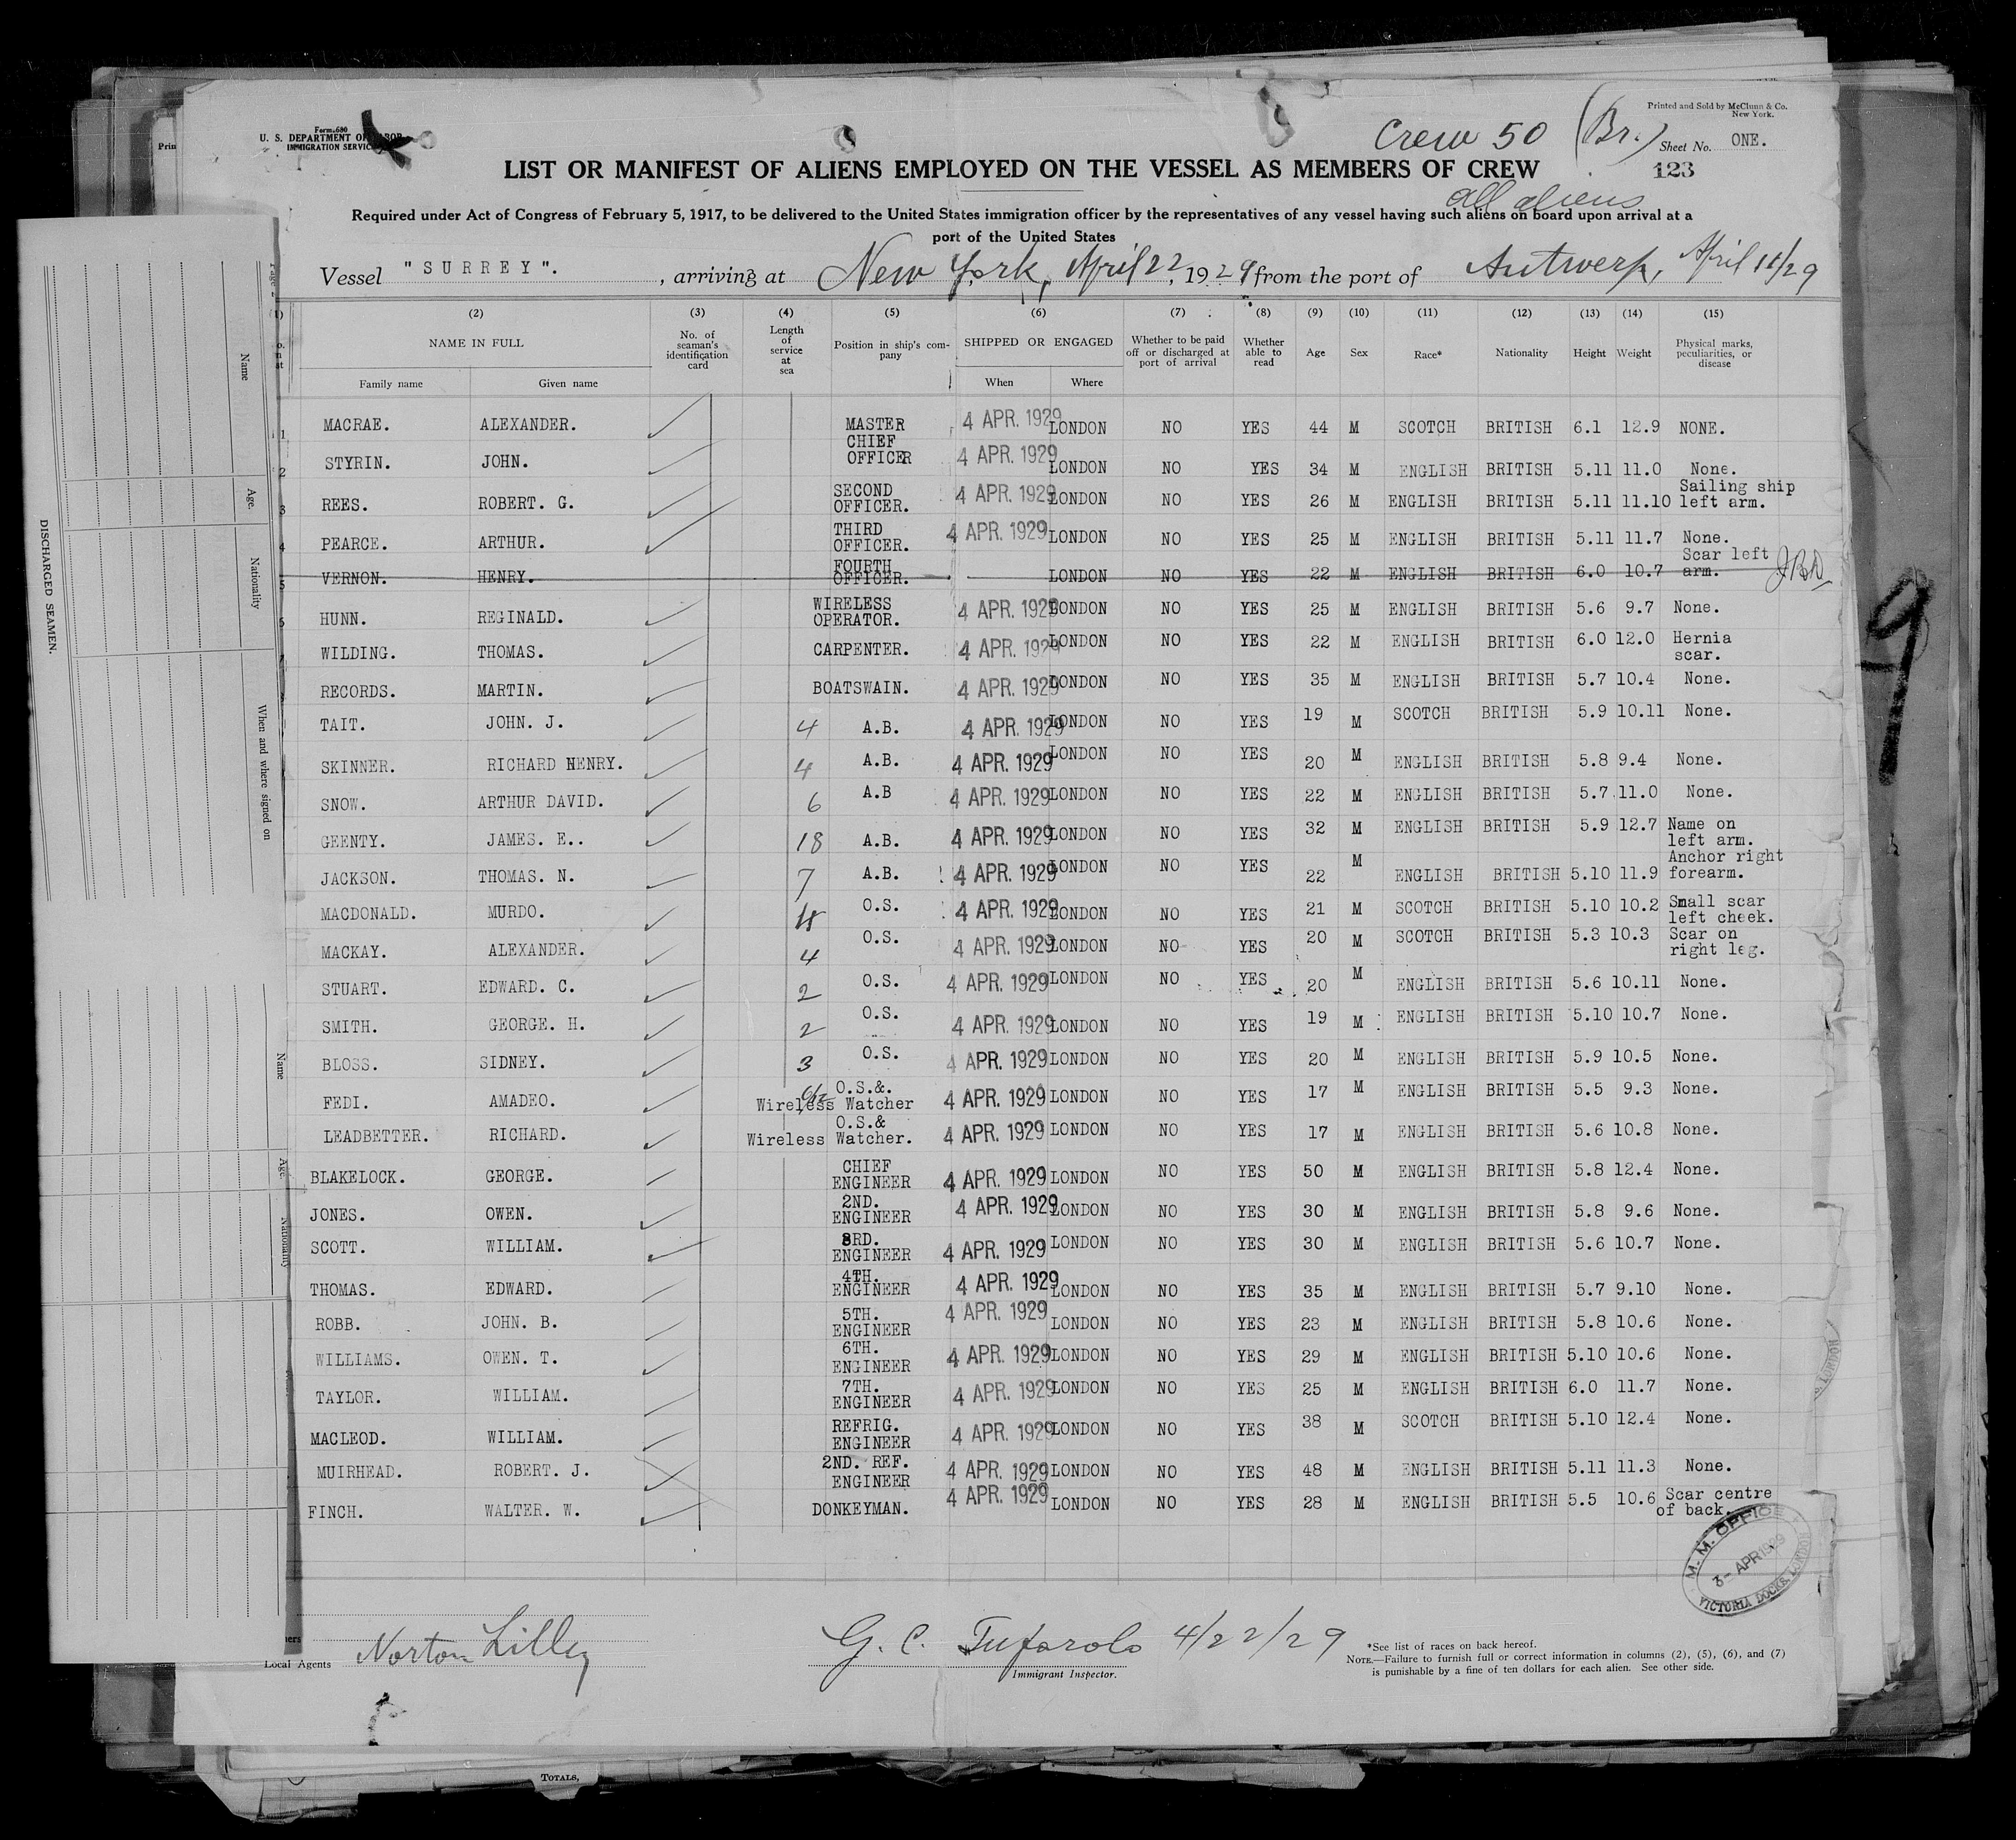 Form 680
U. S. DEPARTMENT OF LABOR
IMMIGRATION SERVICE
Printed and Sold by McClunn & Co.
New York.
Crew 50 (Br.)
Sheet No. ONE.
123
LIST OR MANIFEST OF ALIENS EMPLOYED ON THE VESSEL AS MEMBERS OF CREW
all aliens
Required under Act of Congress of February 5, 1917, to be delivered to the United States immigration officer by the representatives of any vessel having such aliens on board upon arrival at a
port of the United States
Vessel "SURREY". , arriving at New York, April 22, 1929 from the port of Antwerp, April 11/29
(2) (3) (4) (5) (6) (7) (8) (9) (10) (11) (12) (13) (14) (15)
NAME IN FULL No. of seaman's identification card Length of service at sea Position in ship's company SHIPPED OR ENGAGED Whether to be paid off or discharged at port of arrival Whether able to read Age Sex Race* Nationality Height Weight Physical marks, peculiarities, or disease
Family name Given name When Where
1 MACRAE. ALEXANDER. MASTER 4 APR. 1929 LONDON NO YES 44 M SCOTCH BRITISH 6.1 12.9 NONE.
2 STYRIN. JOHN. CHIEF OFFICER 4 APR. 1929 LONDON NO YES 34 M ENGLISH BRITISH 5.11 11.0 None.
3 REES. ROBERT. G. SECOND OFFICER. 4 APR. 1929 LONDON NO YES 26 M ENGLISH BRITISH 5.11 11.10 Sailing ship left arm.
4 PEARCE. ARTHUR. THIRD OFFICER. 4 APR. 1929 LONDON NO YES 25 M ENGLISH BRITISH 5.11 11.7 None.
5 VERNON. HENRY. FOURTH OFFICER. LONDON NO YES 22 M ENGLISH BRITISH 6.0 10.7 Scar left arm.
HUNN. REGINALD. WIRELESS OPERATOR. 4 APR. 1929 LONDON NO YES 25 M ENGLISH BRITISH 5.6 9.7 None.
WILDING. THOMAS. CARPENTER. 4 APR. 1929 LONDON NO YES 22 M ENGLISH BRITISH 6.0 12.0 Hernia scar.
RECORDS. MARTIN. BOATSWAIN. 4 APR. 1929 LONDON NO YES 35 M ENGLISH BRITISH 5.7 10.4 None.
TAIT. JOHN. J. 4 A.B. 4 APR. 1929 LONDON NO YES 19 M SCOTCH BRITISH 5.9 10.11 None.
SKINNER. RICHARD HENRY. 4 A.B. 4 APR. 1929 LONDON NO YES 20 M ENGLISH BRITISH 5.8 9.4 None.
SNOW. ARTHUR DAVID. 6 A.B 4 APR. 1929 LONDON NO YES 22 M ENGLISH BRITISH 5.7 11.0 None.
GEENTY. JAMES. E.. 18 A.B. 4 APR. 1929 LONDON NO YES 32 M ENGLISH BRITISH 5.9 12.7 Name on left arm.
JACKSON. THOMAS. N. 7 A.B. 4 APR. 1929 LONDON NO YES 22 M ENGLISH BRITISH 5.10 11.9 Anchor right forearm.
MACDONALD. MURDO. O.S. 4 APR. 1929 LONDON NO YES 21 M SCOTCH BRITISH 5.10 10.2 Small scar left cheek.
MACKAY. ALEXANDER. 4 O.S. 4 APR. 1929 LONDON NO YES 20 M SCOTCH BRITISH 5.3 10.3 Scar on right leg.
STUART. EDWARD. C. 2 O.S. 4 APR. 1929 LONDON NO YES 20 M ENGLISH BRITISH 5.6 10.11 None.
SMITH. GEORGE. H. 2 O.S. 4 APR. 1929 LONDON NO YES 19 M ENGLISH BRITISH 5.10 10.7 None.
BLOSS. SIDNEY. 3 O.S. 4 APR. 1929 LONDON NO YES 20 M ENGLISH BRITISH 5.9 10.5 None.
FEDI. AMADEO. O.S.&. Wireless Watcher 4 APR. 1929 LONDON NO YES 17 M ENGLISH BRITISH 5.5 9.3 None.
LEADBETTER. RICHARD. O.S.& Wireless Watcher. 4 APR. 1929 LONDON NO YES 17 M ENGLISH BRITISH 5.6 10.8 None.
BLAKELOCK. GEORGE. CHIEF ENGINEER 4 APR. 1929 LONDON NO YES 50 M ENGLISH BRITISH 5.8 12.4 None.
JONES. OWEN. 2ND. ENGINEER 4 APR. 1929 LONDON NO YES 30 M ENGLISH BRITISH 5.8 9.6 None.
SCOTT. WILLIAM. 3RD. ENGINEER 4 APR. 1929 LONDON NO YES 30 M ENGLISH BRITISH 5.6 10.7 None.
THOMAS. EDWARD. 4TH. ENGINEER 4 APR. 1929 LONDON NO YES 35 M ENGLISH BRITISH 5.7 9.10 None.
ROBB. JOHN. B. 5TH. ENGINEER 4 APR. 1929 LONDON NO YES 23 M ENGLISH BRITISH 5.8 10.6 None.
WILLIAMS. OWEN. T. 6TH. ENGINEER 4 APR. 1929 LONDON NO YES 29 M ENGLISH BRITISH 5.10 10.6 None.
TAYLOR. WILLIAM. 7TH. ENGINEER 4 APR. 1929 LONDON NO YES 25 M ENGLISH BRITISH 6.0 11.7 None.
MACLEOD. WILLIAM. REFRIG. ENGINEER 4 APR. 1929 LONDON NO YES 38 M SCOTCH BRITISH 5.10 12.4 None.
MUIRHEAD. ROBERT. J. 2ND. REF. ENGINEER 4 APR. 1929 LONDON NO YES 48 M ENGLISH BRITISH 5.11 11.3 None.
FINCH. WALTER. W. DONKEYMAN. 4 APR. 1929 LONDON NO YES 28 M ENGLISH BRITISH 5.5 10.6 Scar centre of back.
M. M. OFFICE
3 - APR 1929
VICTORIA DOCKS, LONDON
Local Agents Norton Lilley
G. C. Tufarolo 4/22/29
Immigrant Inspector.
*See list of races on back hereof.
NOTE.—Failure to furnish full or correct information in columns (2), (5), (6), and (7)
is punishable by a fine of ten dollars for each alien. See other side.
DISCHARGED SEAMEN.
Name
Age.
Nationality
When and where signed on
Name
Age
Nationality
9
TOTALS,